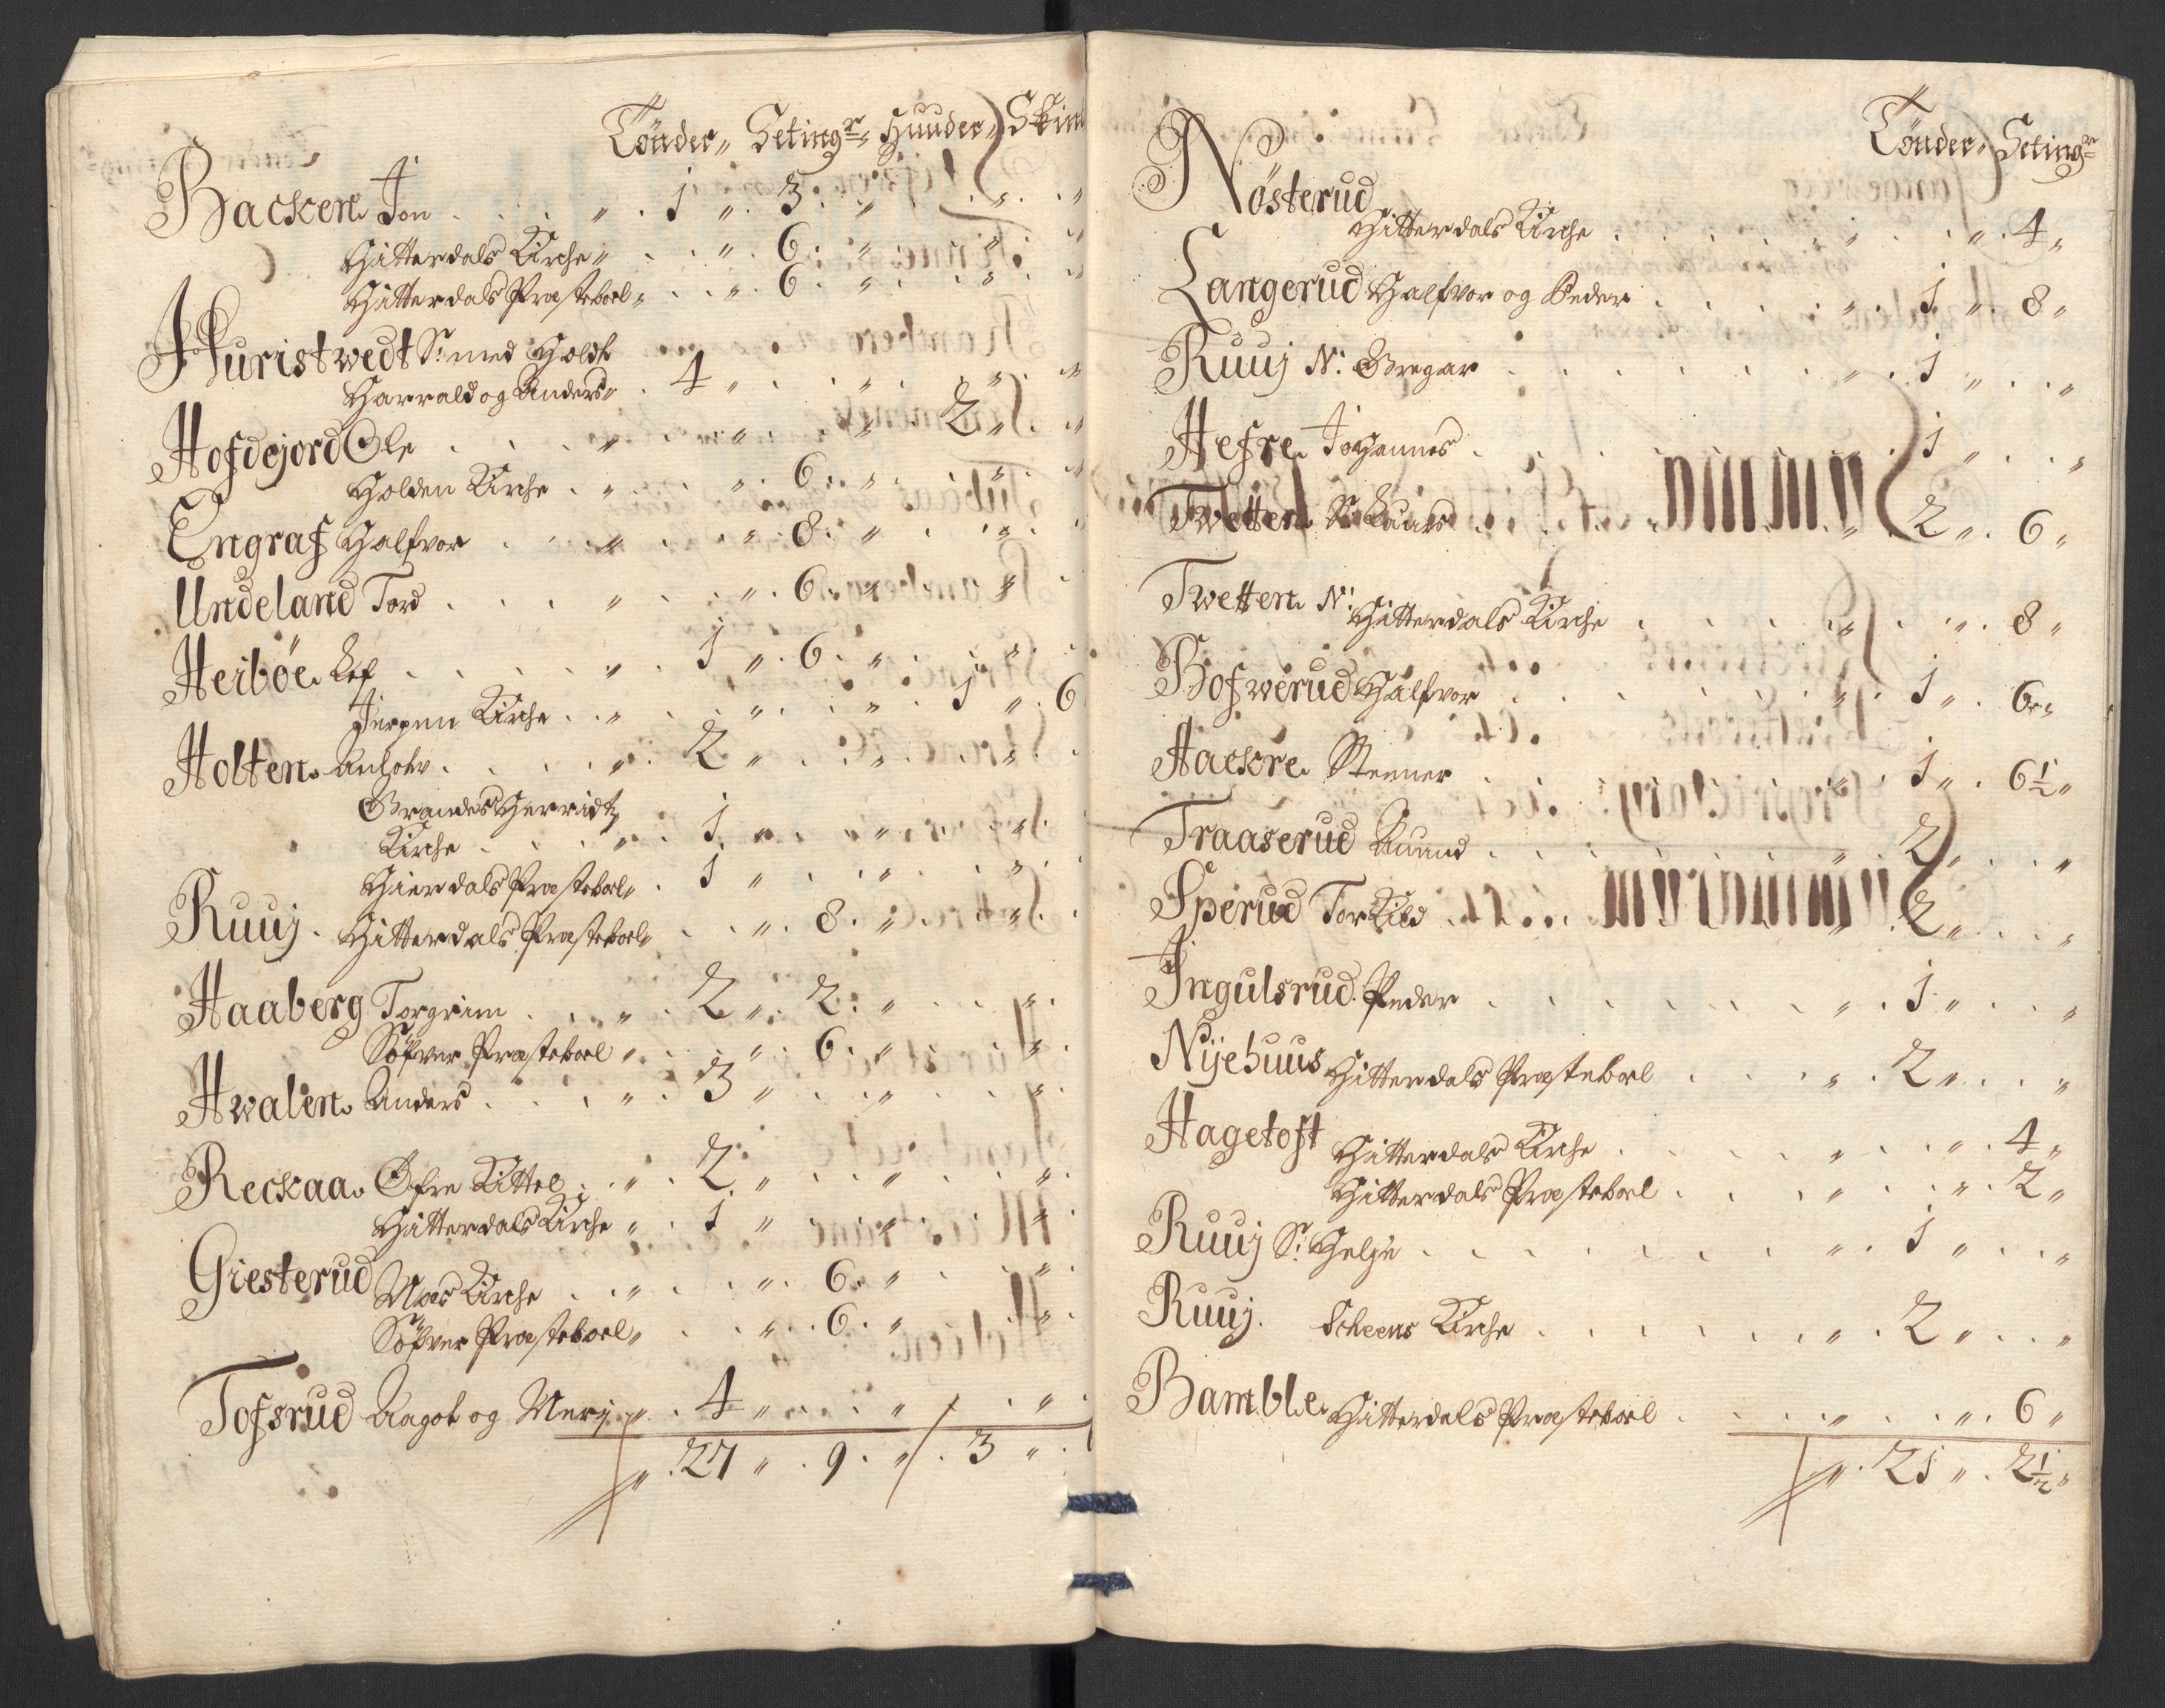 Tönder„ Setingr„ Huuder„ Skin
Backen Jon . . . „ . 1 „ . 3 . „ . . „ . „
Hitterdals Kirche „ . . „ . 6 . „ . „ . „
Hitterdals Præstebol „ . . „ . 6 . „ . „ . „
Huristwedt Sr med Holdt
Harrald og Anders „ . 4 „ . . „ . „ . „
Hofdejord Ole . . . „ . . „ . „ . 2 „ . „
Holden Kirche . „ . . „ . 6 . „ . „ . „
Engraf Halfvor . . „ . . „ . 8 . „ . . „ .
Undeland Tord . . . „ . . „ . 6 . „ . „ .
Heiböe Lef . . . . „ . 1 „ . 6 . „ . . „ .
Jerpen Kirche . . „ . . „ . . „ . 1 „ . 6
Holten Anlohv . . . . „ . 2 „ . . „ . . „ .
Brandes Herridtz
Kirche . . . „ . 1 . „ . . „ . . „ .
Hierdals Præstebol „ . 1 „ . . „ . . „ .
Ruuj . Hitterdals Præstebol „ . . „ . 8 . „ . . „ .
Haaberg Torgrim . . . „ . 2 „ . 2 . „ . . „ .
Söfver Præstebol „ . . „ . 6 . „ . . „ .
Hwalen Anders . . . „ . 3 „ . . „ . . „ .
Reckaa Öfre Kittel . . „ . 2 „ . . „ . . „ .
Hitterdals Kirche „ . 1 „ . . „ . . „ .
Giesterud Mæs Kirche . . „ . . „ . 6 . „ . . „ .
Söfver Præstebol „ . . „ . 6 . „ . . „ .
Tofsrud Aagot og Merj „ . 4 „ . . . „ . „ .
„ . 27 „ . 9 . „ . 3 „ .
Tönder„ Setingr
Nösterud
Hitterdals Kirche . . . . „ . . „ . 4 „
Langerud Halfvor og Peder . . . . „ . 1 „ . 8 „
Ruuj N: Gregar . . . . . „ . 1 „ . . „
Hefre Johannes . . . . „ . 1 „ . . „
Twetten Sr Laurs . . . . „ . 2 „ . 6 „
Twetten N:
Hitterdals Kirche . . . . „ . . „ . 8 „
Bofwerud Halfvor . . . . „ . 1 „ . 6 „
Hackre Steener . . . . „ . 1 „ . 6½ „
Traaserud Amund . . . . „ . 2 „ . . „
Sperud Torkild . . . . „ . 2 „ . . „
Ingulsrud Peder . . . . . „ . 1 „ . . „
Nijehuus Hitterdals Præstebol . . . „ . 2 „ . . „
Hagetoft Hitterdals Kirche . . . . „ . . „ . 4 „
Hitterdals Præstebol . . . „ . . „ . 2 „
Ruuj Sr Helje . . . . . „ . 1 „ . . „
Ruuj . Scheens Kirche . . . . . „ . 2 „ . . „
Bamble Hitterdals Præstebol . . . . „ . . „ . 6 „
„ . 21 „ . 2½ „